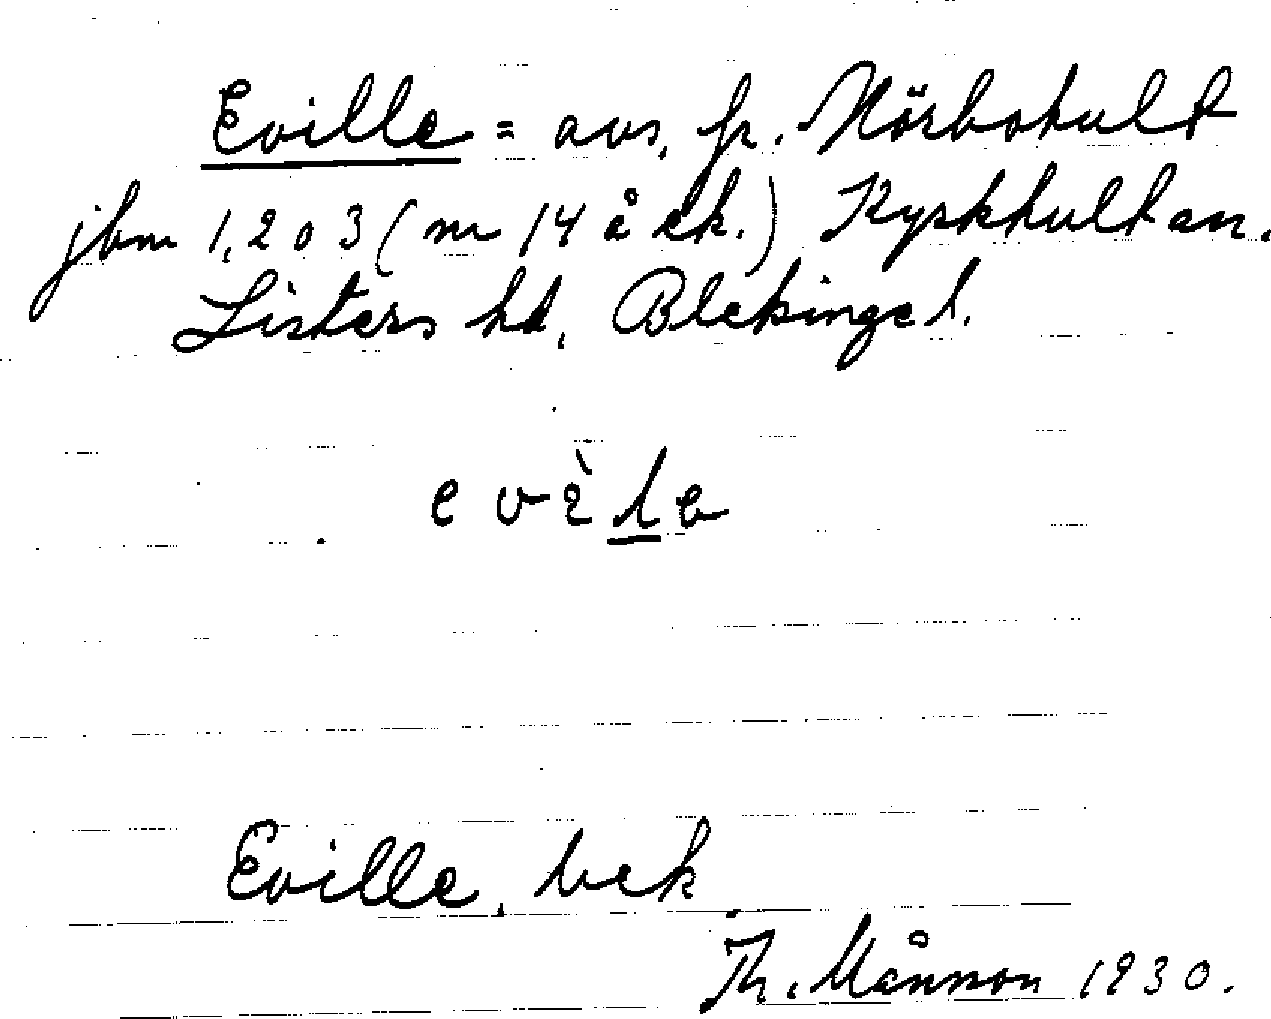 Eville = avs. fr. Mörbohult
jbm 1,2 o 3 (m 14 å ek.) Kyrkhult sn.
Listers hd, Blekinge l.
e v è l e
Eville, bek.
Th. Månsson 1930.